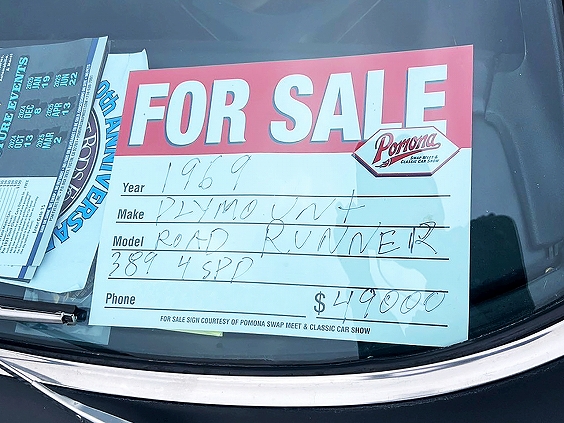 FOR SALE
Pomona
SWAP MEET &
CLASSIC CAR SHOW
Year 1969
Make PLYMOUNT
Model ROAD RUNNER
389 4 SPD
Phone $49000
FOR SALE SIGN COURTESY OF POMONA SWAP MEET & CLASSIC CAR SHOW
TURE EVENTS
2024 OCT 13
2024 DEC 8
2025 JAN 19
2025 MAR 2
2025 APR 13
2025 JUN 22
TH ANNIVERSA
RODS &